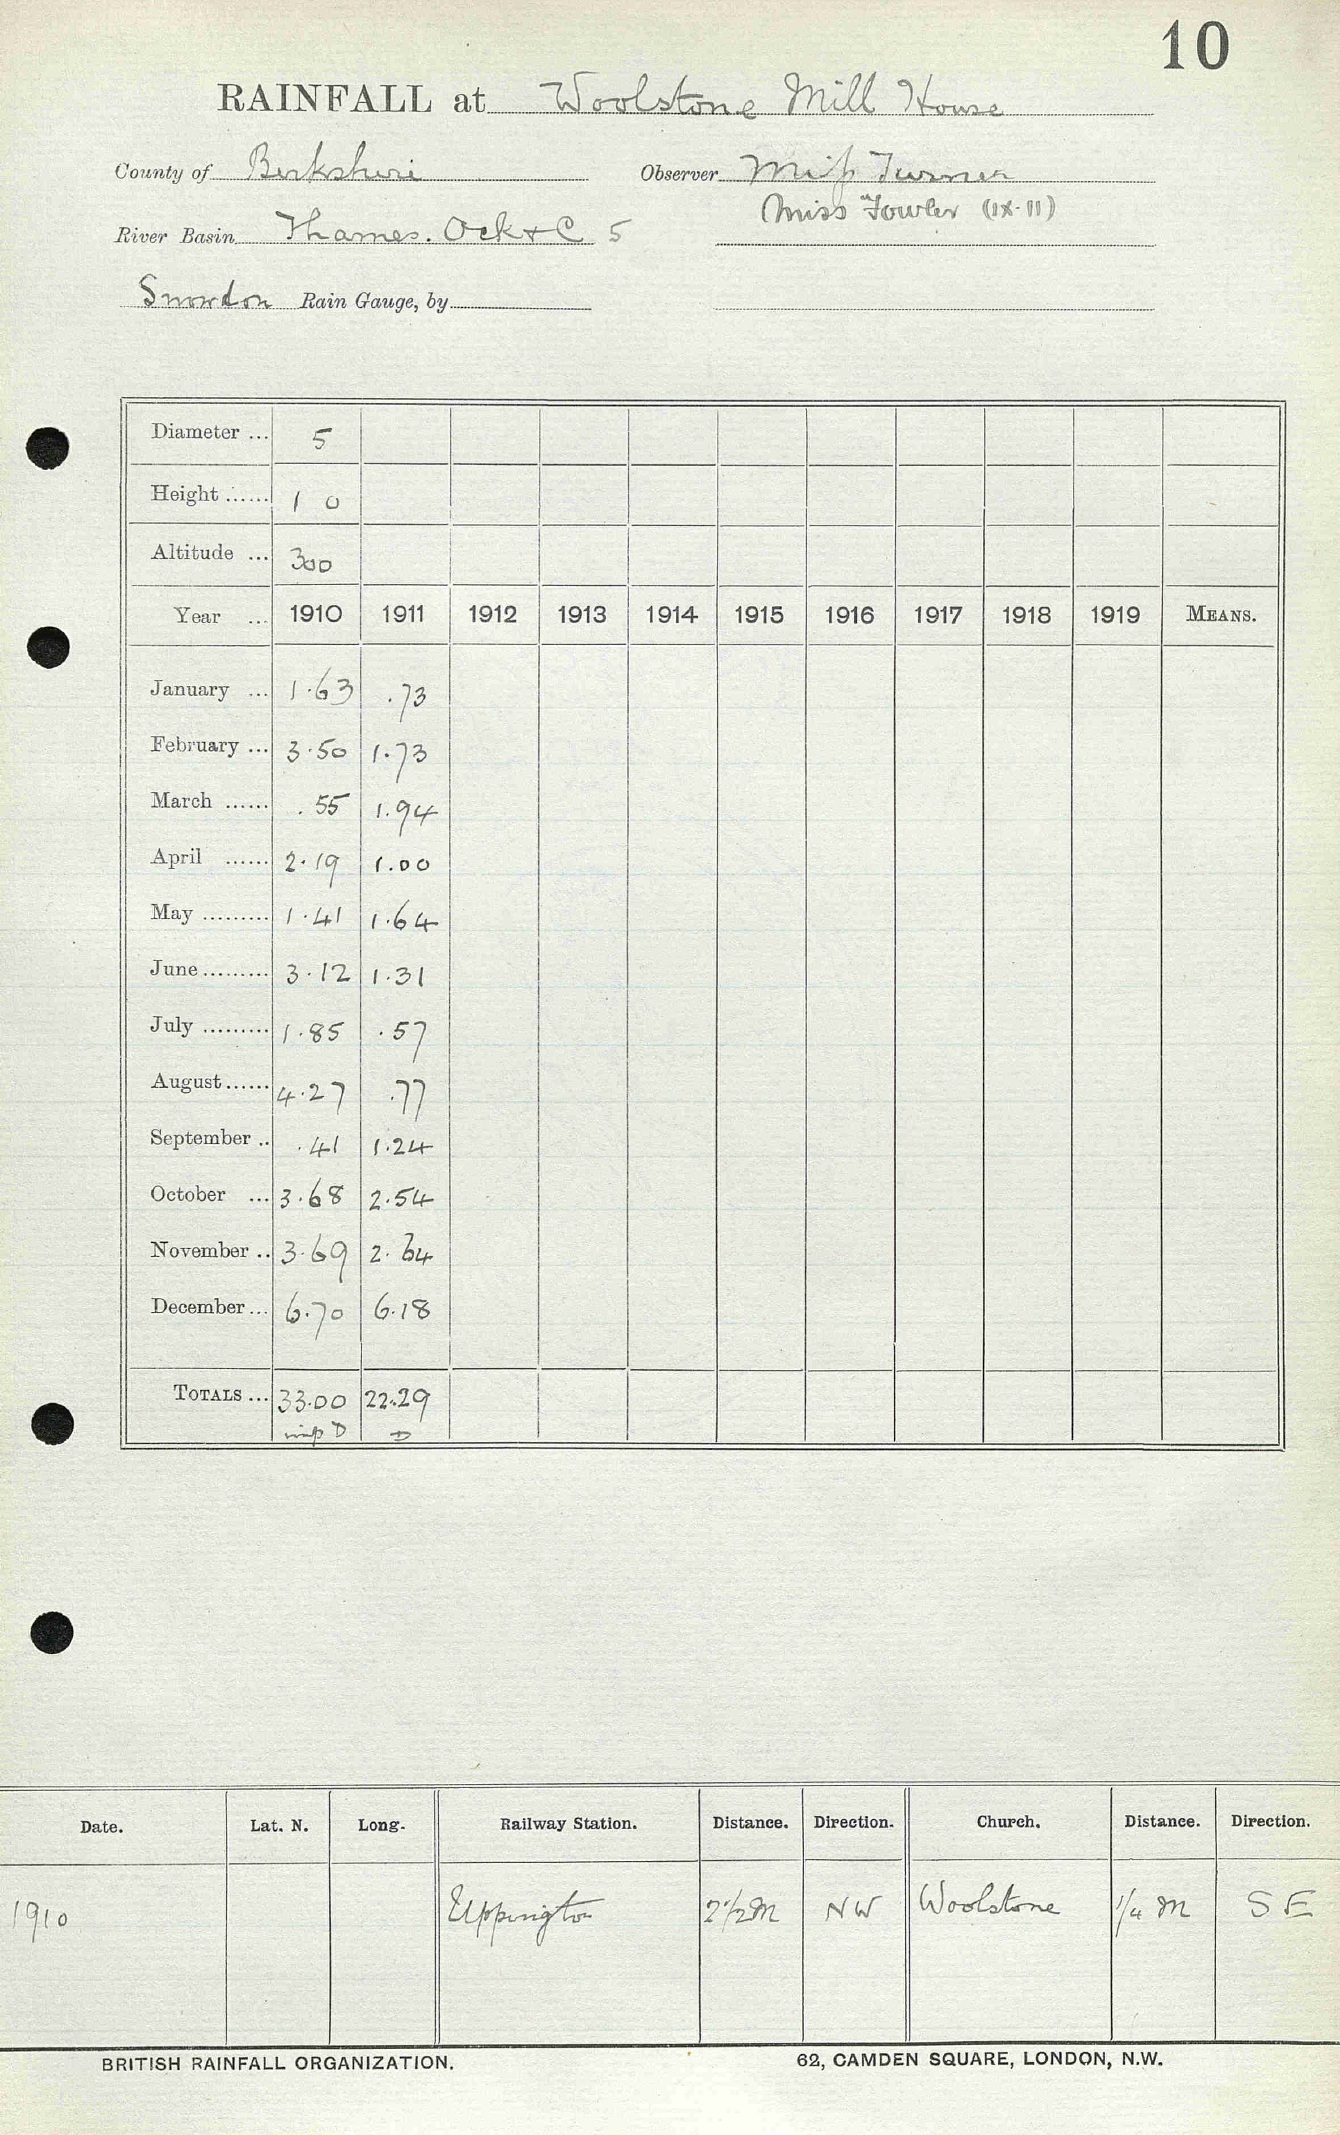 10
RAINFALL at Woolstone Mill House
County of Berkshire Observer Miss Turner
Miss Fowler (IX-11)
River Basin Thames. Ock + C 5
Snowdon Rain Gauge, by
Diameter ... 5
Height ...... 1 0
Altitude ... 300
Year ... 1910 1911 1912 1913 1914 1915 1916 1917 1918 1919 MEANS.
January ... 1.63 .73
February ... 3.50 1.73
March ...... .55 1.94
April ...... 2.19 1.00
May ......... 1.41 1.64
June ......... 3.12 1.31
July ......... 1.85 .57
August ...... 4.27 .77
September .. .41 1.24
October ... 3.68 2.54
November .. 3.69 2.64
December ... 6.70 6.18
TOTALS ... 33.00 22.29
D D
Date. Lat. N. Long. Railway Station. Distance. Direction. Church. Distance. Direction.
1910 Uppington 2 1/2 M NW Woolstone 1/4 M S E
BRITISH RAINFALL ORGANIZATION. 62, CAMDEN SQUARE, LONDON, N.W.